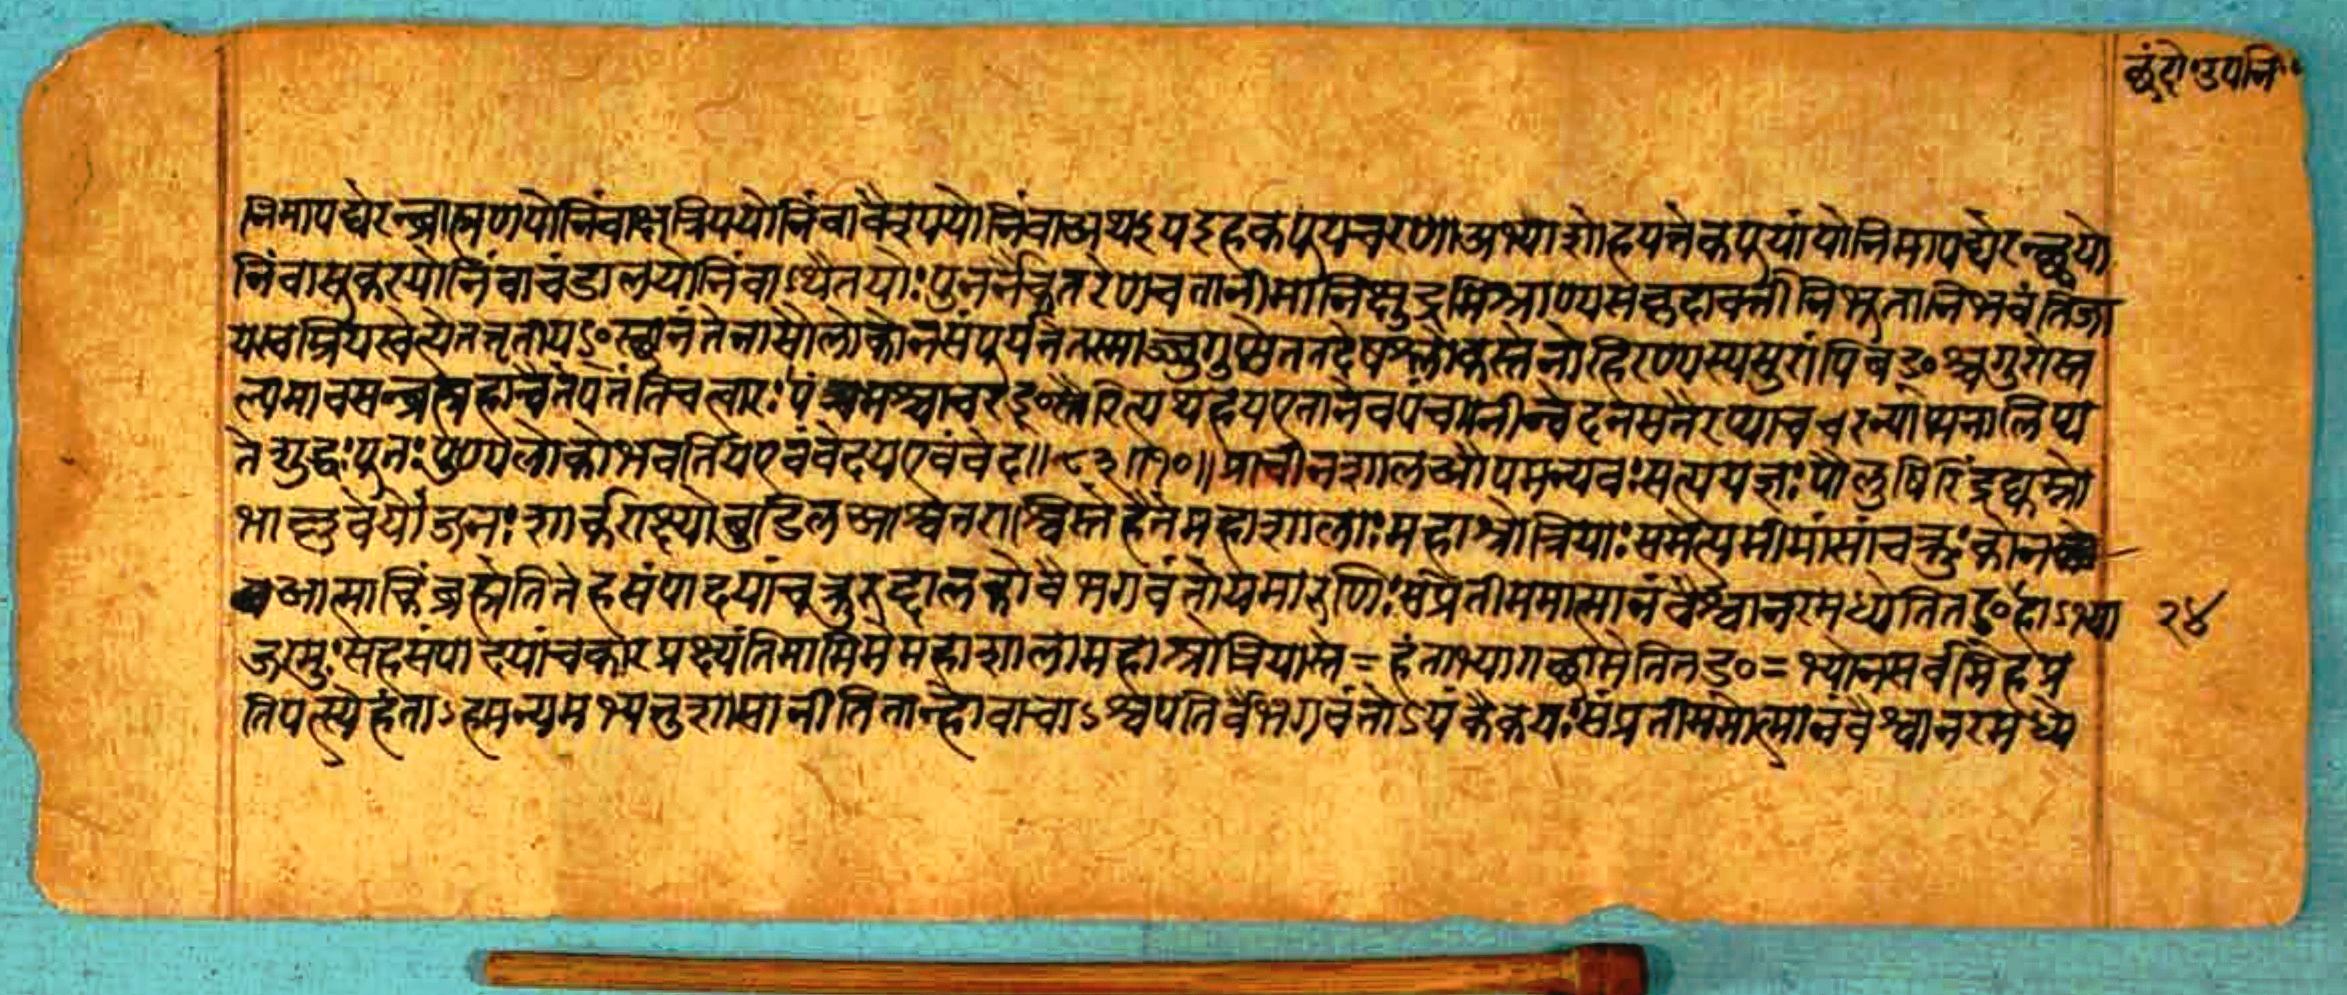 छंदो॰उपनि॰
निमापद्येरन्ब्राह्मणयोनिंवाक्षत्रिययोनिंवावैश्ययोनिंवाअथइयइहकपूयचरणाअभ्याशोहयत्तेकपूयांयोनिमापद्येरन्छ्वयो
निंवासूकरयोनिंवाचंडालयोनिंवाऽथैतयोः पुनर्नैकतरेणचतानीमानिक्षुद्रमिश्राण्यसकृदावर्त्तीनिभूतानिभवंतिजा
यस्वम्रियस्वेत्येतत्तृतीयऽ॰स्थानंतेनासौलोकोनसंपूर्यतेतस्माज्जुगुप्सेततदेषश्लोकस्तेनोहिरण्यस्यसुरांपिबऽ॰श्चगुरोस्त
ल्पमावसन्ब्रह्महाचैतेपतंतिचत्वारः पंचमश्चाचरऽ॰स्तैरित्यथहयएतानेवंपंचाग्नीन्वेदनसतैरप्याचरन्पाप्मनालिप्य
तेशुद्धः पूतः पुण्यलोकोभवतियएवंवेदयएवंवेद॥८३॥१०॥प्राचीनशालऔपमन्यवः सत्ययज्ञः पौलुषिरिंद्रद्युम्नो
भाल्लवेयोजनः शार्कराक्ष्योबुडिलआश्वतराश्विस्तेहैतेमहाशालाः महाश्रोत्रियाः समेत्यमीमांसांचक्रुः कोन
आत्माकिंब्रह्मेतितेहसंपादयांचक्रुरुद्दालकोवैभगवंतोयमारुणिः संप्रतीममात्मानंवैश्वानरमध्येतितऽ॰हाऽभ्या
२४
जग्मुः सहसंपादयांचकारप्रक्ष्यंतिमामिमेमहाशालामहाश्रोत्रियास्ते=हंताभ्यागछामेतितऽ॰=भ्योनसर्वमिहप्र
तिपत्स्येहंताऽहमन्यमभ्यनुशासानीतितान्होवाचाऽश्वपतिर्वैभगवंतोऽयंकैकयः संप्रतीममात्मानंवैश्वानरमध्ये